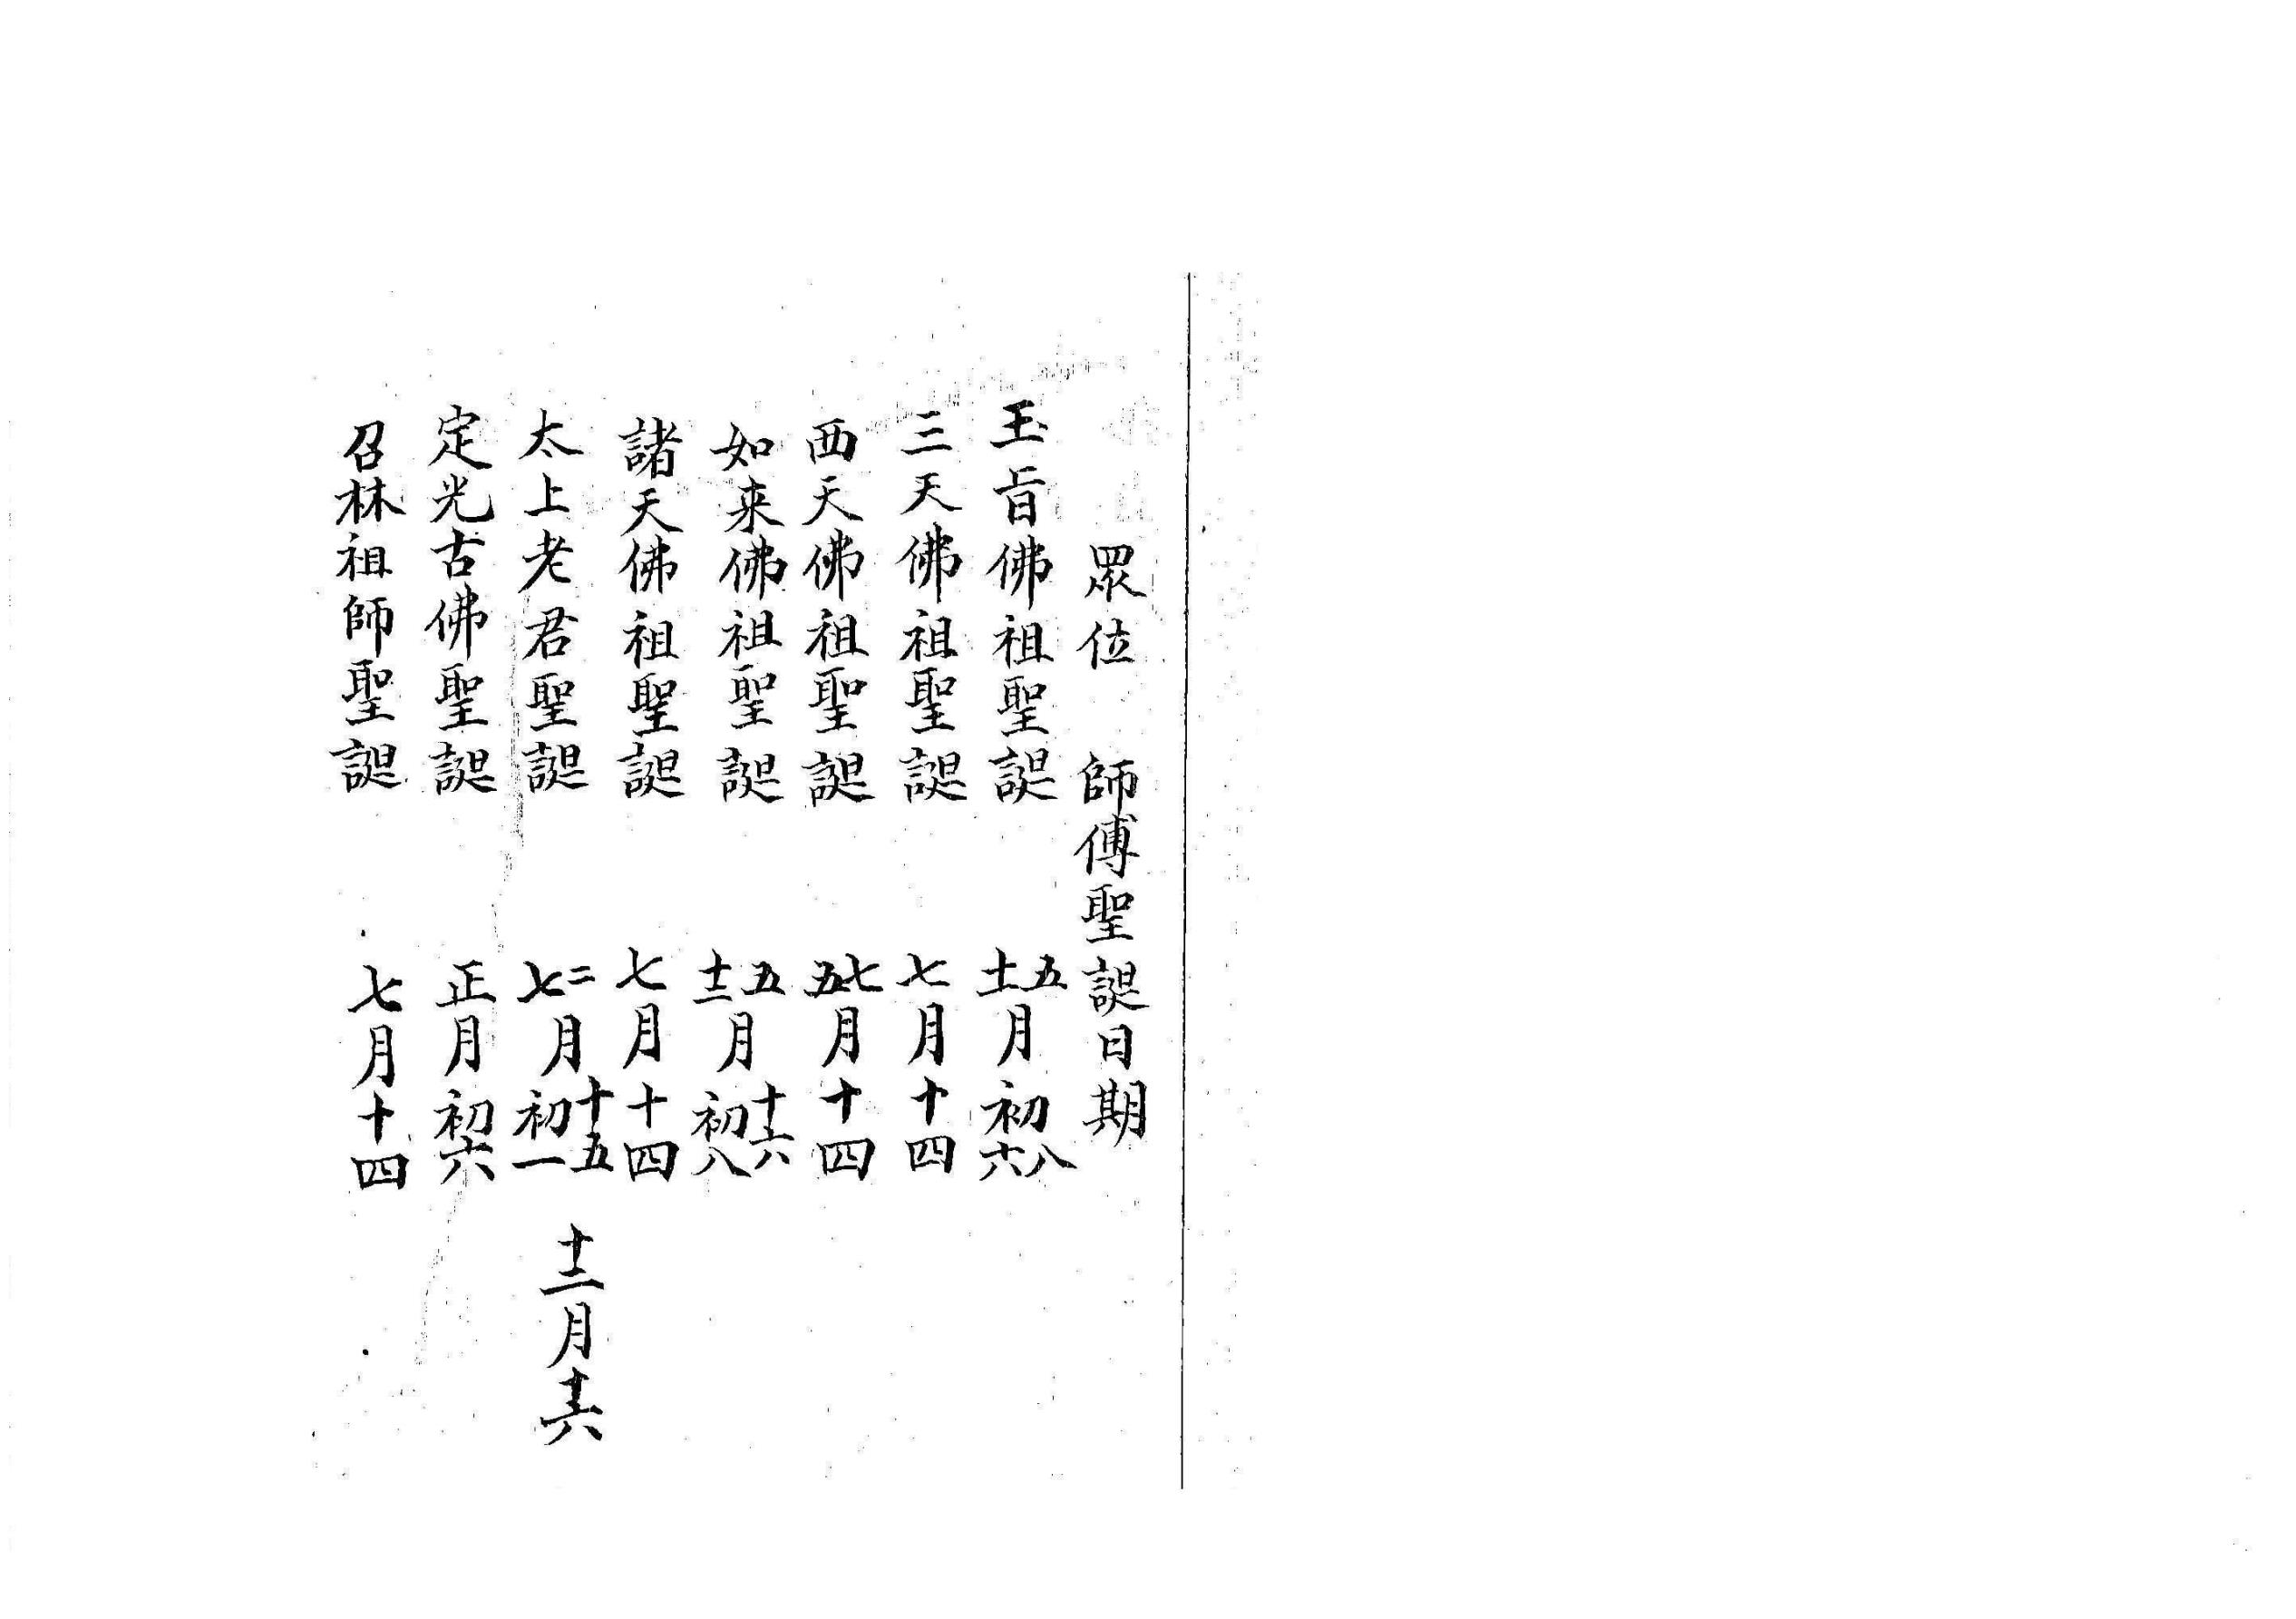 眾位 師傅聖誕日期
玉旨佛祖聖誕 五十一月初八六
三天佛祖聖誕 七月十四
西天佛祖聖誕 七五月十四
如来佛祖聖誕 五十二月十六初八
諸天佛祖聖誕 七月十四
太上老君聖誕 二七月十五初一 十二月十六
定光古佛聖誕 正月初六
召林祖師聖誕 七月十四